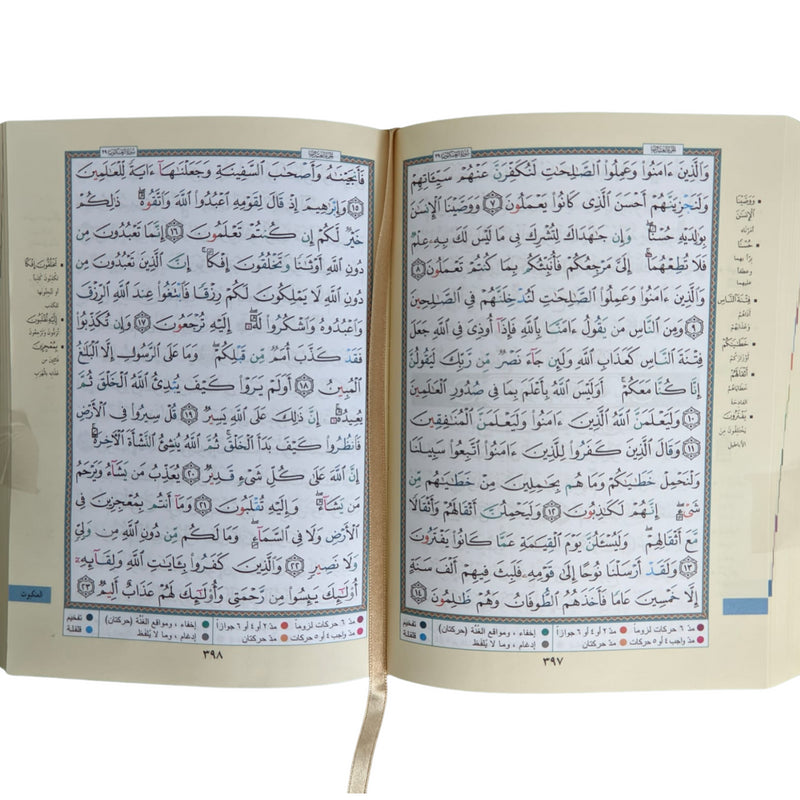 وَالَّذِينَ ءَامَنُوا وَعَمِلُوا الصَّـٰلِحَـٰتِ لَنُكَفِّرَنَّ عَنْهُمْ سَيِّـَٔاتِهِمْ
وَلَنَجْزِيَنَّهُمْ أَحْسَنَ الَّذِى كَانُوا يَعْمَلُونَ ٧ وَوَصَّيْنَا الْإِنسَـٰنَ
بِوَٰلِدَيْهِ حُسْنًا وَإِن جَـٰهَدَاكَ لِتُشْرِكَ بِى مَا لَيْسَ لَكَ بِهِۦ عِلْمٌ
فَلَا تُطِعْهُمَا إِلَىَّ مَرْجِعُكُمْ فَأُنَبِّئُكُم بِمَا كُنتُمْ تَعْمَلُونَ ٨
وَالَّذِينَ ءَامَنُوا وَعَمِلُوا الصَّـٰلِحَـٰتِ لَنُدْخِلَنَّهُمْ فِى الصَّـٰلِحِينَ
٩ وَمِنَ النَّاسِ مَن يَقُولُ ءَامَنَّا بِاللَّهِ فَإِذَا أُوذِىَ فِى اللَّهِ جَعَلَ
فِتْنَةَ النَّاسِ كَعَذَابِ اللَّهِ وَلَئِن جَآءَ نَصْرٌ مِّن رَّبِّكَ لَيَقُولُنَّ
إِنَّا كُنَّا مَعَكُمْ أَوَلَيْسَ اللَّهُ بِأَعْلَمَ بِمَا فِى صُدُورِ الْعَـٰلَمِينَ
١٠ وَلَيَعْلَمَنَّ اللَّهُ الَّذِينَ ءَامَنُوا وَلَيَعْلَمَنَّ الْمُنَـٰفِقِينَ
١١ وَقَالَ الَّذِينَ كَفَرُوا لِلَّذِينَ ءَامَنُوا اتَّبِعُوا سَبِيلَنَا
وَلْنَحْمِلْ خَطَـٰيَـٰكُمْ وَمَا هُم بِحَـٰمِلِينَ مِنْ خَطَـٰيَـٰهُم مِّن
شَىْءٍ إِنَّهُمْ لَكَـٰذِبُونَ ١٢ وَلَيَحْمِلُنَّ أَثْقَالَهُمْ وَأَثْقَالًا
مَّعَ أَثْقَالِهِمْ وَلَيُسْـَٔلُنَّ يَوْمَ الْقِيَـٰمَةِ عَمَّا كَانُوا يَفْتَرُونَ
١٣ وَلَقَدْ أَرْسَلْنَا نُوحًا إِلَىٰ قَوْمِهِۦ فَلَبِثَ فِيهِمْ أَلْفَ سَنَةٍ
إِلَّا خَمْسِينَ عَامًا فَأَخَذَهُمُ الطُّوفَانُ وَهُمْ ظَـٰلِمُونَ ١٤
وَوَصَّيْنَا
الْإِنسَـٰنَ
أمرناه
حُسْنًا
برًّا بهما
وعطفًا
عليهما
فِتْنَةَ النَّاسِ
أذاهم
وعذابهم
خَطَـٰيَـٰكُمْ
أوزاركم
أَثْقَالَهُمْ
خطاياهم
الفادحة
يَفْتَرُونَ
يختلقون من
الأباطيل
مدّ ٦ حركات لزوماً مدّ ٢ أو ٤ أو ٦ جوازاً إخفاء، ومواقع الغُنَّة (حركتان) تفخيم
مدّ واجب ٤ أو ٥ حركات مدّ حركتان إدغام، وما لا يُلفَظ قلقلة
٣٩٧
فَأَنجَيْنَـٰهُ وَأَصْحَـٰبَ السَّفِينَةِ وَجَعَلْنَـٰهَآ ءَايَةً لِّلْعَـٰلَمِينَ
١٥ وَإِبْرَٰهِيمَ إِذْ قَالَ لِقَوْمِهِ اعْبُدُوا اللَّهَ وَاتَّقُوهُ ذَٰلِكُمْ
خَيْرٌ لَّكُمْ إِن كُنتُمْ تَعْلَمُونَ ١٦ إِنَّمَا تَعْبُدُونَ مِن
دُونِ اللَّهِ أَوْثَـٰنًا وَتَخْلُقُونَ إِفْكًا إِنَّ الَّذِينَ تَعْبُدُونَ مِن
دُونِ اللَّهِ لَا يَمْلِكُونَ لَكُمْ رِزْقًا فَابْتَغُوا عِندَ اللَّهِ الرِّزْقَ
وَاعْبُدُوهُ وَاشْكُرُوا لَهُۥ إِلَيْهِ تُرْجَعُونَ ١٧ وَإِن تُكَذِّبُوا
فَقَدْ كَذَّبَ أُمَمٌ مِّن قَبْلِكُمْ وَمَا عَلَى الرَّسُولِ إِلَّا الْبَلَـٰغُ
الْمُبِينُ ١٨ أَوَلَمْ يَرَوْا كَيْفَ يُبْدِئُ اللَّهُ الْخَلْقَ ثُمَّ
يُعِيدُهُۥ إِنَّ ذَٰلِكَ عَلَى اللَّهِ يَسِيرٌ ١٩ قُلْ سِيرُوا فِى الْأَرْضِ
فَانظُرُوا كَيْفَ بَدَأَ الْخَلْقَ ثُمَّ اللَّهُ يُنشِئُ النَّشْأَةَ الْـَٔاخِرَةَ
إِنَّ اللَّهَ عَلَىٰ كُلِّ شَىْءٍ قَدِيرٌ ٢٠ يُعَذِّبُ مَن يَشَآءُ وَيَرْحَمُ
مَن يَشَآءُ وَإِلَيْهِ تُقْلَبُونَ ٢١ وَمَآ أَنتُم بِمُعْجِزِينَ فِى
الْأَرْضِ وَلَا فِى السَّمَآءِ وَمَا لَكُم مِّن دُونِ اللَّهِ مِن وَلِىٍّ
وَلَا نَصِيرٍ ٢٢ وَالَّذِينَ كَفَرُوا بِـَٔايَـٰتِ اللَّهِ وَلِقَآئِهِۦٓ
أُولَـٰٓئِكَ يَئِسُوا مِن رَّحْمَتِى وَأُولَـٰٓئِكَ لَهُمْ عَذَابٌ أَلِيمٌ ٢٣
تَخْلُقُونَ إِفْكًا
تكذبون كذبًا
إِلَيْهِ تُقْلَبُونَ
بِمُعْجِزِينَ
فائتين من
عذابه بالهرب
العنكبوت
مدّ ٦ حركات لزوماً مدّ ٢ أو ٤ أو ٦ جوازاً إخفاء، ومواقع الغُنَّة (حركتان) تفخيم
مدّ واجب ٤ أو ٥ حركات مدّ حركتان إدغام، وما لا يُلفَظ قلقلة
٣٩٨